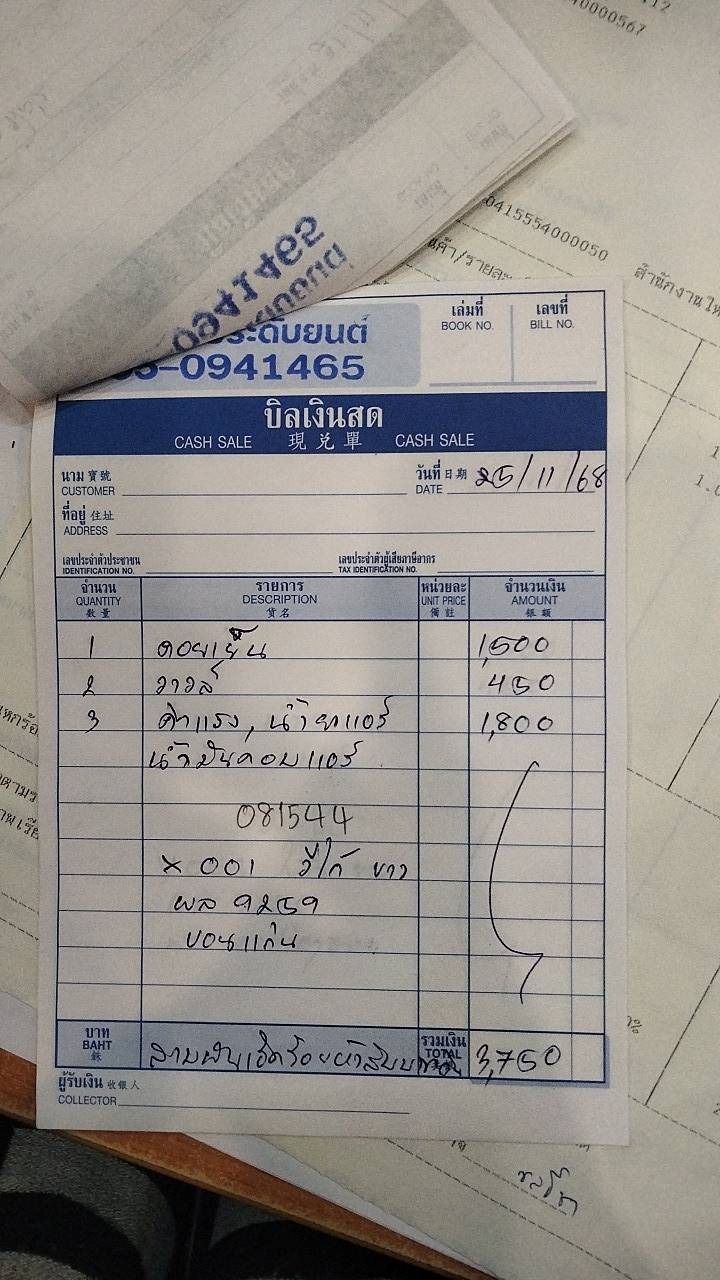 40000567
0415554000050 สำนักงานให
นค้า/รายละ
ระดับยนต์
-0941465
เล่มที่
BOOK NO.
เลขที่
BILL NO.
บิลเงินสด
CASH SALE 現兑單 CASH SALE
นาม 寶號
CUSTOMER
วันที่ 日期
DATE
25/11/68
ที่อยู่ 住址
ADDRESS
เลขประจำตัวประชาชน
IDENTIFICATION NO.
เลขประจำตัวผู้เสียภาษีอากร
TAX IDENTIFICATION NO.
จำนวน
QUANTITY
數量
รายการ
DESCRIPTION
貨名
หน่วยละ
UNIT PRICE
備註
จำนวนเงิน
AMOUNT
銀額
1 คอยเย็น 1,500
2 วาวล์ 450
3 ค่าแรง, น้ำยาแอร์ 1,800
น้ำมันคอมแอร์
081544
X 001 วีโก้ ขาว
ผล 9259
ขอนแก่น
บาท
BAHT
銖
สามพันเจ็ดร้อยห้าสิบบาท
รวมเงิน
TOTAL
3,750
ผู้รับเงิน 收銀人
COLLECTOR